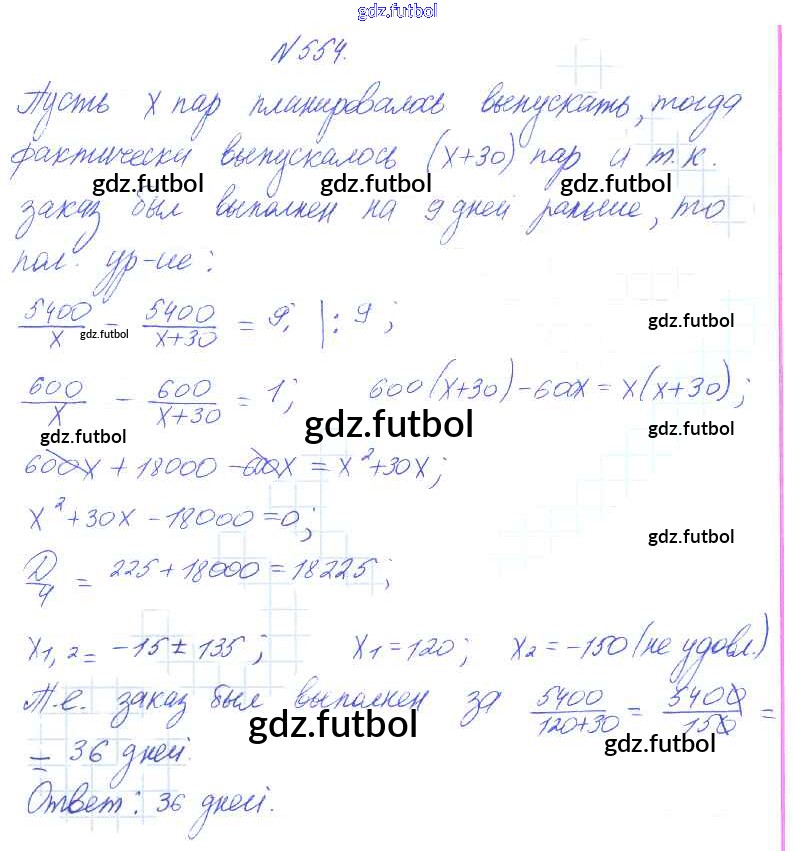 gdz.futbol
N 554.
Пусть x пар планировалось выпускать, тогда
фактически выпускалось (x+30) пар и т.к.
gdz.futbol gdz.futbol gdz.futbol
заказ был выполнен на 9 дней раньше, то
пол. ур-ие:
5400/x - 5400/(x+30) = 9; |:9;
gdz.futbol gdz.futbol
600/x - 600/(x+30) = 1; 600(x+30)-600x = x(x+30);
gdz.futbol gdz.futbol gdz.futbol
600x + 18000 - 600x = x²+30x;
x²+30x-18000=0;
gdz.futbol
D/4 = 225+18000=18225;
x1,2= -15±135; x1=120; x2=-150 (не удовл.)
Т.е. заказ был выполнен за 5400/(120+30) = 5400/150 =
gdz.futbol gdz.futbol
= 36 дней.
Ответ: 36 дней.